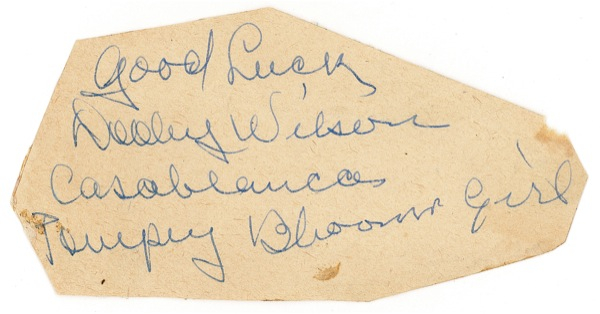 Good Luck
Dooley Wilson
Casablanca
Pompey Bloomer Girl